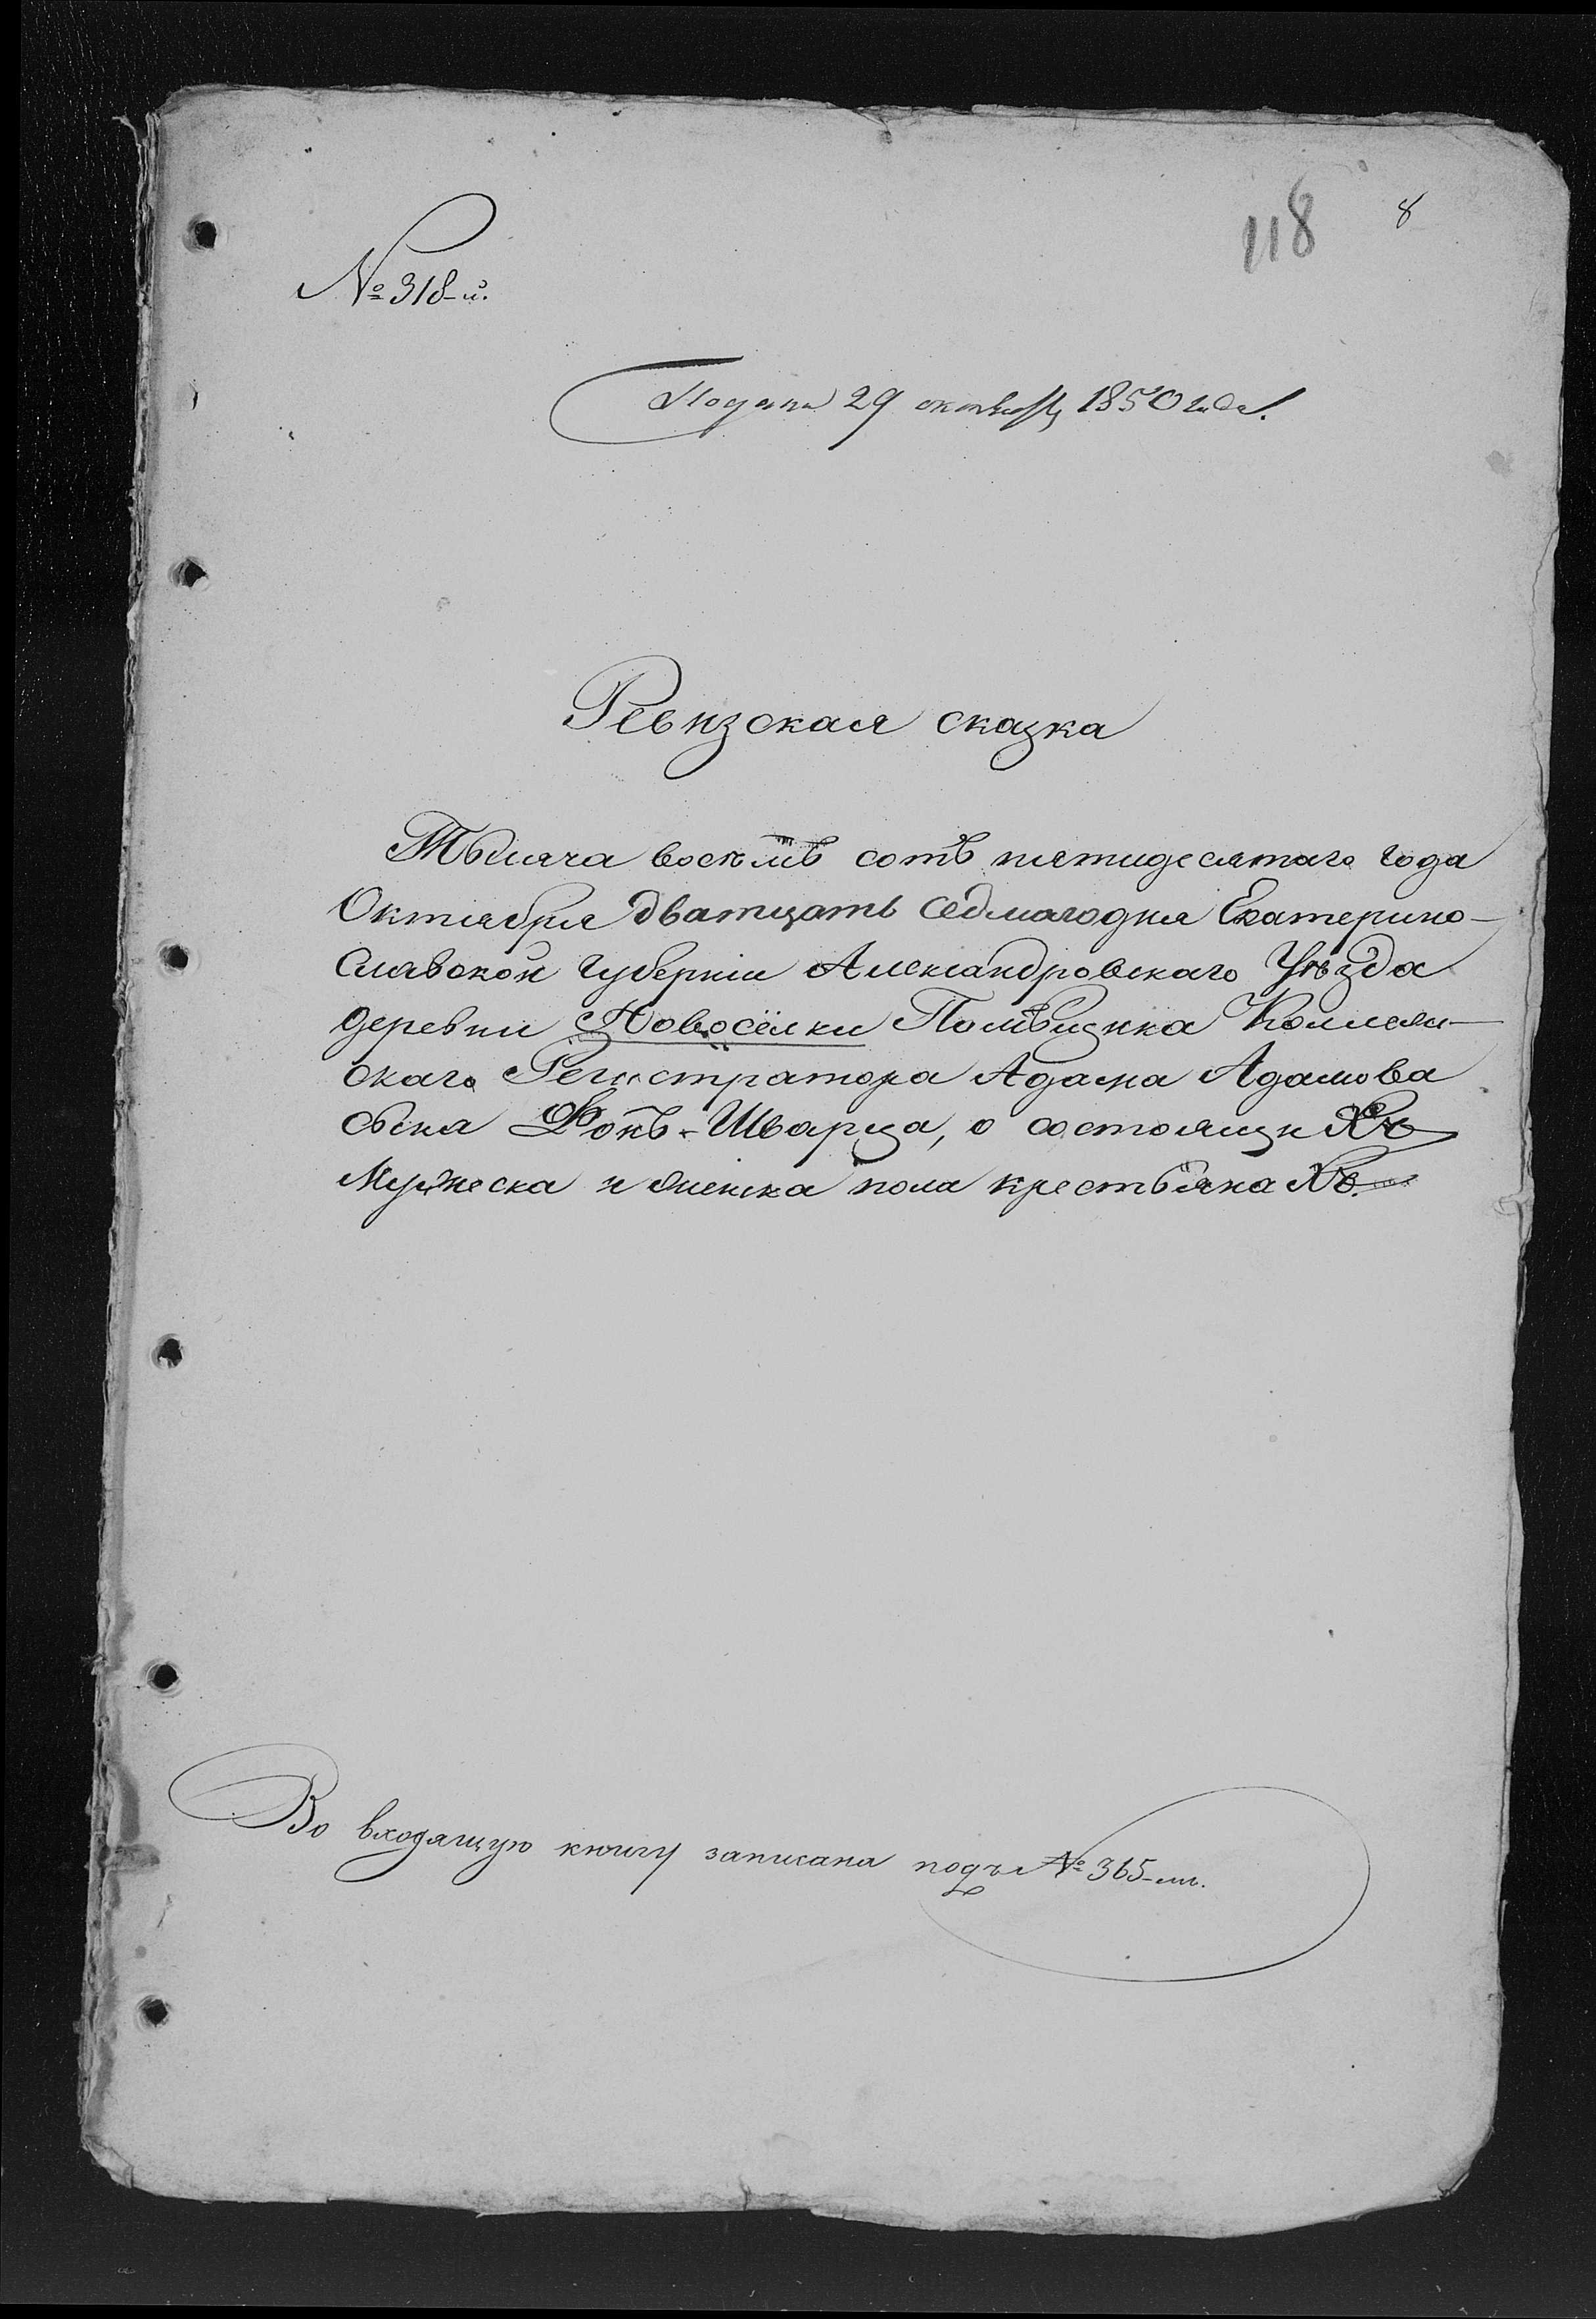 118 8
№ 318-й.
Подана 29 октября 1850 года.
Ревизская сказка
Тысяча восѣмь сотъ пятидесятаго года
Октября дватцать седмагодня Екатерино-
славской губерніи Александровскаго Уѣзда
деревни Новосёлки Помѣщика Коллеж-
скаго Регистратора Адама Адамова
сына Фонъ-Шварца, о состоящихъ
Мужеска и женска пола крестьянахъ.
Во входящую книгу записана подъ № 365-мъ.